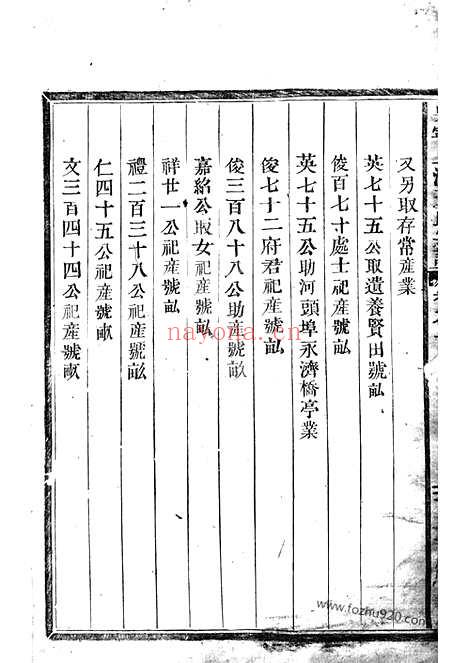 又另取存常産業
英七十五公取遺養賢田號畆
俊百七十處士祀産號畆
英七十五公助河頭埠永濟橋亭業
俊七十二府君祀産號畆
俊三百八十八公助産號畝
嘉紿公取女祀産號畆
祥廿一公祀産號畆
禮二百三十八公祀産號畝
仁四十五公祀産號畝
文三百四十四公祀産號畝
nayona.cn
www.fozhu920.com